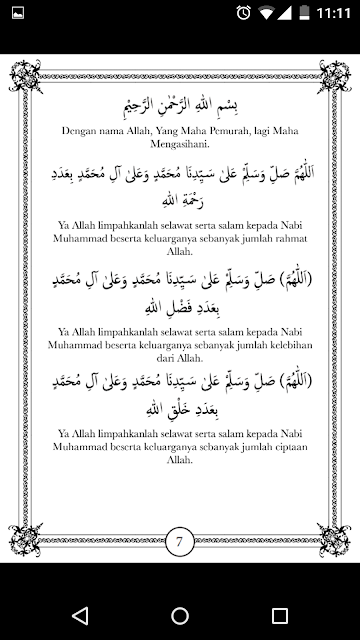 11:11
بِسْمِ اللهِ الرَّحْمٰنِ الرَّحِيْمِ
Dengan nama Allah, Yang Maha Pemurah, lagi Maha
Mengasihani.
اَللّٰهُمَّ صَلِّ وَسَلِّمْ عَلىٰ سَيِّدِنَا مُحَمَّدٍ وَعَلىٰ آلِ مُحَمَّدٍ بِعَدَدِ
رَحْمَةِ اللهِ
Ya Allah limpahkanlah selawat serta salam kepada Nabi
Muhammad beserta keluarganya sebanyak jumlah rahmat
Allah.
(اَللّٰهُمَّ) صَلِّ وَسَلِّمْ عَلىٰ سَيِّدِنَا مُحَمَّدٍ وَعَلىٰ آلِ مُحَمَّدٍ
بِعَدَدِ فَضْلِ اللهِ
Ya Allah limpahkanlah selawat serta salam kepada Nabi
Muhammad beserta keluarganya sebanyak jumlah kelebihan
dari Allah.
(اَللّٰهُمَّ) صَلِّ وَسَلِّمْ عَلىٰ سَيِّدِنَا مُحَمَّدٍ وَعَلىٰ آلِ مُحَمَّدٍ
بِعَدَدِ خَلْقِ اللهِ
Ya Allah limpahkanlah selawat serta salam kepada Nabi
Muhammad beserta keluarganya sebanyak jumlah ciptaan
Allah.
7